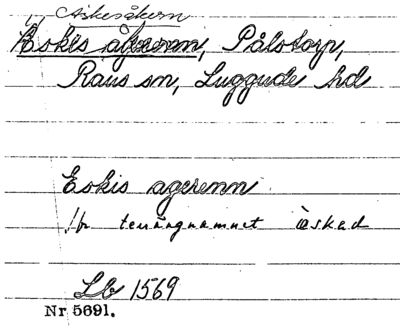 Askesåkern
Eskis ågerenn, Pålstorp,
Raus sn, Luggude hd
Eskis agerenn
jfr terrängnamnet Eskad
Lb 1569
Nr 5691.